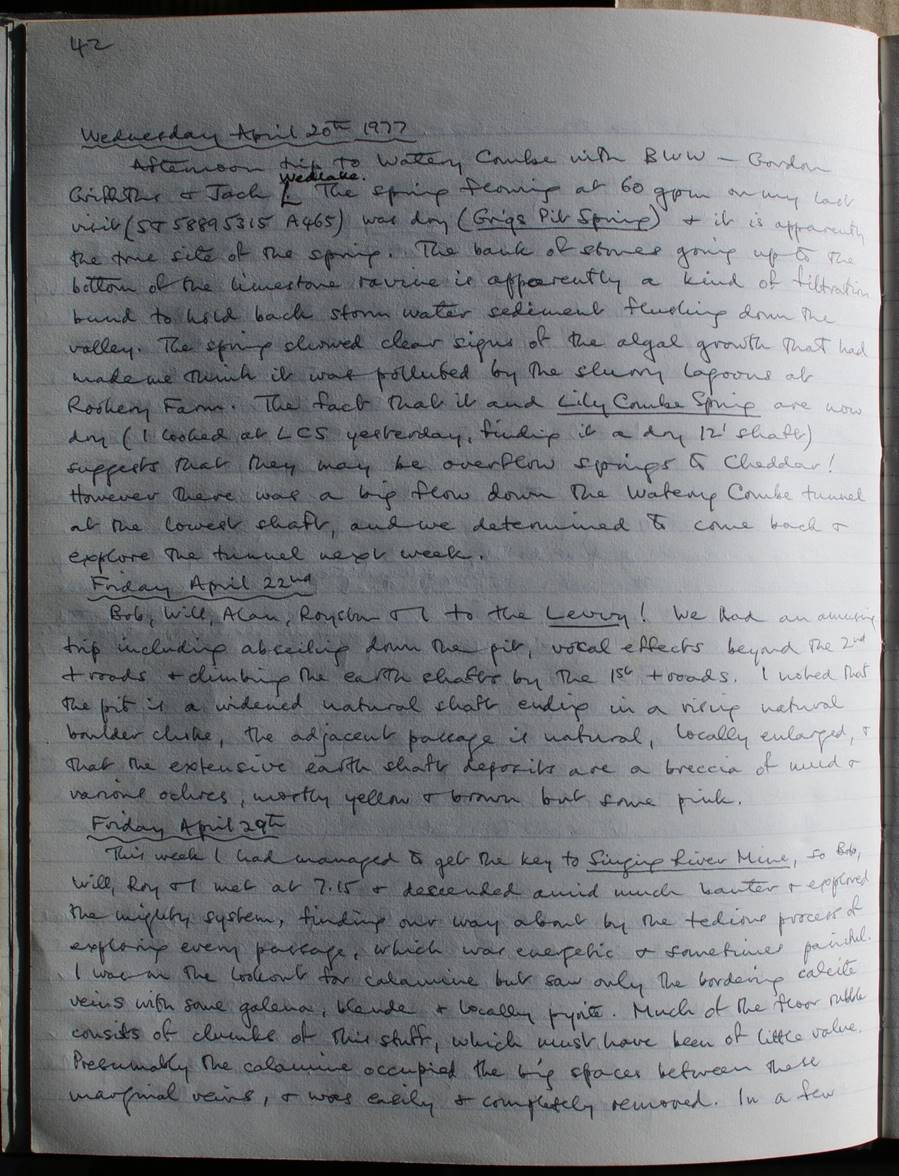 42
Wednesday April 20th 1977
Afternoon trip to Watery Combe with BWW - Gordon
Griffiths & Jack Wedlake. The spring flowing at 60 gpm on my last
visit (ST 58895315 A465) was dry (Grigs Pit Spring) & it is apparently
the true site of the spring. The bank of stones going up to the
bottom of the limestone ravine is apparently a kind of filtration
bund to hold back storm water sediment flushing down the
valley. The spring showed clear signs of the algal growth that had
made me think it was polluted by the slurry lagoons at
Rookery Farm. The fact that it and Lily Combe Spring are now
dry (I looked at LCS yesterday, finding it a dry 12' shaft)
suggests that they may be overflow springs to Cheddar!
However there was a big flow down the Watery Combe tunnel
at the lowest shaft, and we determined to come back &
explore the tunnel next week.
Friday April 22nd
Bob, Will, Alan, Royston & I to the Levvy! We had an amusing
trip including abseiling down the pit, vocal effects beyond the 2nd
+ roads & climbing the earth shafts by the 1st + roads. I noted that
the pit is a widened natural shaft ending in a rising natural
boulder choke, the adjacent passage is natural, locally enlarged, &
that the extensive earth shaft deposits are a breccia of mud &
various ochres, mostly yellow & brown but some pink.
Friday April 29th
This week I had managed to get the key to Singing River Mine, so Bob,
Will, Roy & I met at 7.15 & descended amid much banter & explored
the mighty system, finding our way about by the tedious process of
exploring every passage, which was energetic & sometimes painful.
I was on the lookout for calamine but saw only the bordering calcite
veins with some galena, blende & locally pyrite. Much of the floor rubble
consists of chunks of this stuff, which must have been of little value.
Presumably the calamine occupied the big spaces between these
marginal veins, & was easily & completely removed. In a few